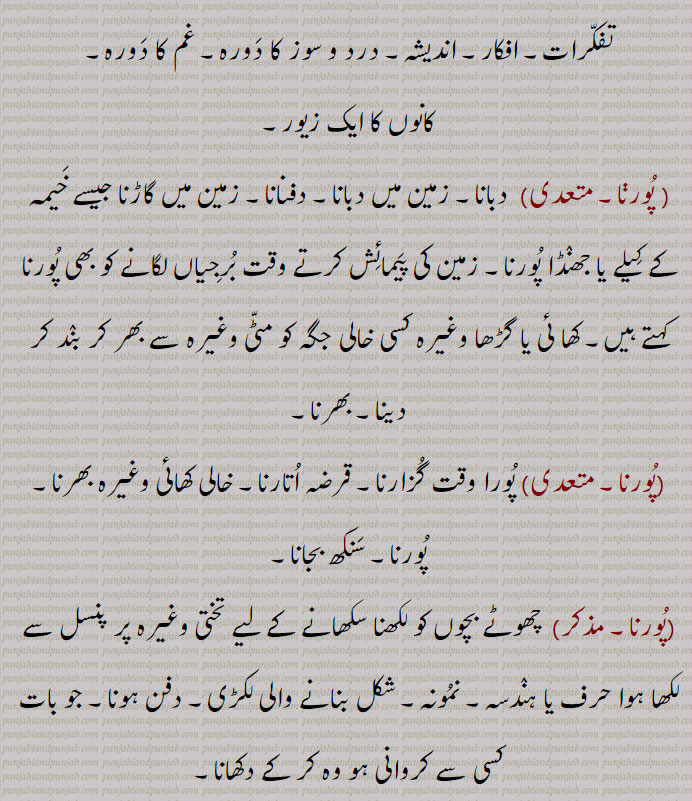 تفکّرات ۔ افکار ۔ اندیشہ ۔ درد و سوز کا دَورہ ۔ غم کا دَورہ ۔
کانوں کا ایک زیور ۔
( پُورنا ۔ متعدی) دبانا ۔ زمین میں دبانا ۔ دفنانا ۔ زمین میں گاڑنا جیسے خَیمہ
کے کِیلے یا جھنڈا پُورنا ۔ زمین کی پَیمائِش کرتے وقت بُرجِیاں لگانے کو بھی پُورنا
کہتے ہیں ۔ کھائی یا گڑھا وغیرہ کسی خالی جگہ کو مٹّی وغیرہ سے بھر کر بند کر
دینا ۔ بھرنا ۔
(پُورنا ۔ متعدی) پُورا وقت گُزارنا ۔ قرضہ اُتارنا ۔ خالی کھائی وغیرہ بھرنا ۔
پُورنا ۔ سَنکھ بجانا ۔
(پُورنا ۔ مذکر) چھوٹے بچوں کو لکھنا سکھانے کے لیے تختی وغیرہ پر پنسل سے
لکھا ہوا حرف یا ہندسہ ۔ نمُونہ ۔ شکل بنانے والی لکڑی ۔ دفن ہونا ۔ جو بات
کسی سے کروانی ہو وہ کر کے دکھانا ۔